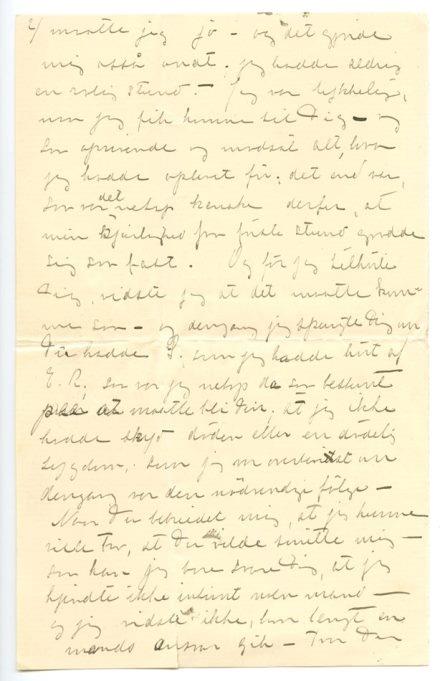 2/ maatte jeg jo – og det gjorde
mig også ondt. jeg hadde aldrig
en rolig stund. – Jeg var lykkelig,
naar jeg fik komme til Dig – og
som oprørende og modsat alt, hvad
jeg hadde oplevet før; det end var,
saa var det netop kanske derfor, at
min kjærlighed fra første stund grodde
sig saa fast. Og før jeg tilhørte
Dig, vidste jeg at det maatte komme
me saa – og dengang jeg spurgte Dig om
Du hadde S., som jeg hadde hørt af
E. R., saa var jeg netop da saa bestemt
paa at maatte bli Din, at jeg ikke
hadde skyd døden eller en dødelig
sygdom, som jeg var overbevist om
dengang var den nødvendige følge –
Naar Du bebreidet mig, at jeg kunne
ville tro, at Du vilde smitte mig –
saa kan jeg bare svare Dig, at jeg
kjendte ikke intimt noen mand –
og jeg vidste ikke, hvor langt en
mands ansvar gik – Tror Du